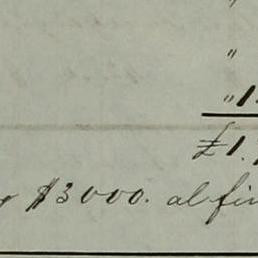 "
"
" 1
£1.
$3000. al fin